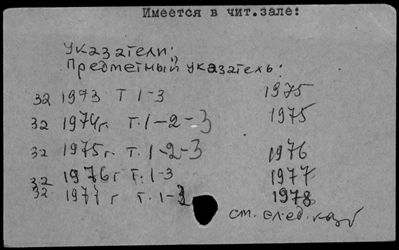 Имеется в чит.зале:
Указатели:
Предметный указатель:
32 1973 Т 1-3 1975
32 1974г. т. 1-2-3 1975
32 1975г. т. 1-2-3 1976
32 1976г т. 1-3 1977
32. 1977 г т. 1-3 1978
см. след.